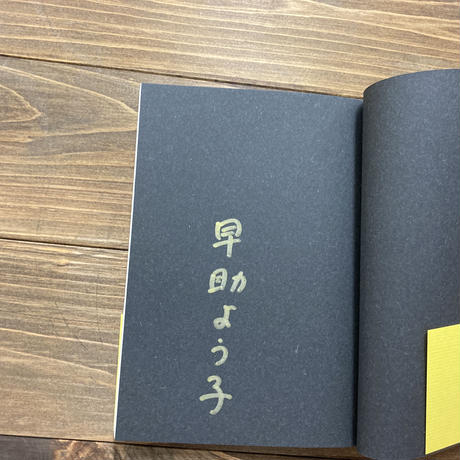 早助よう子